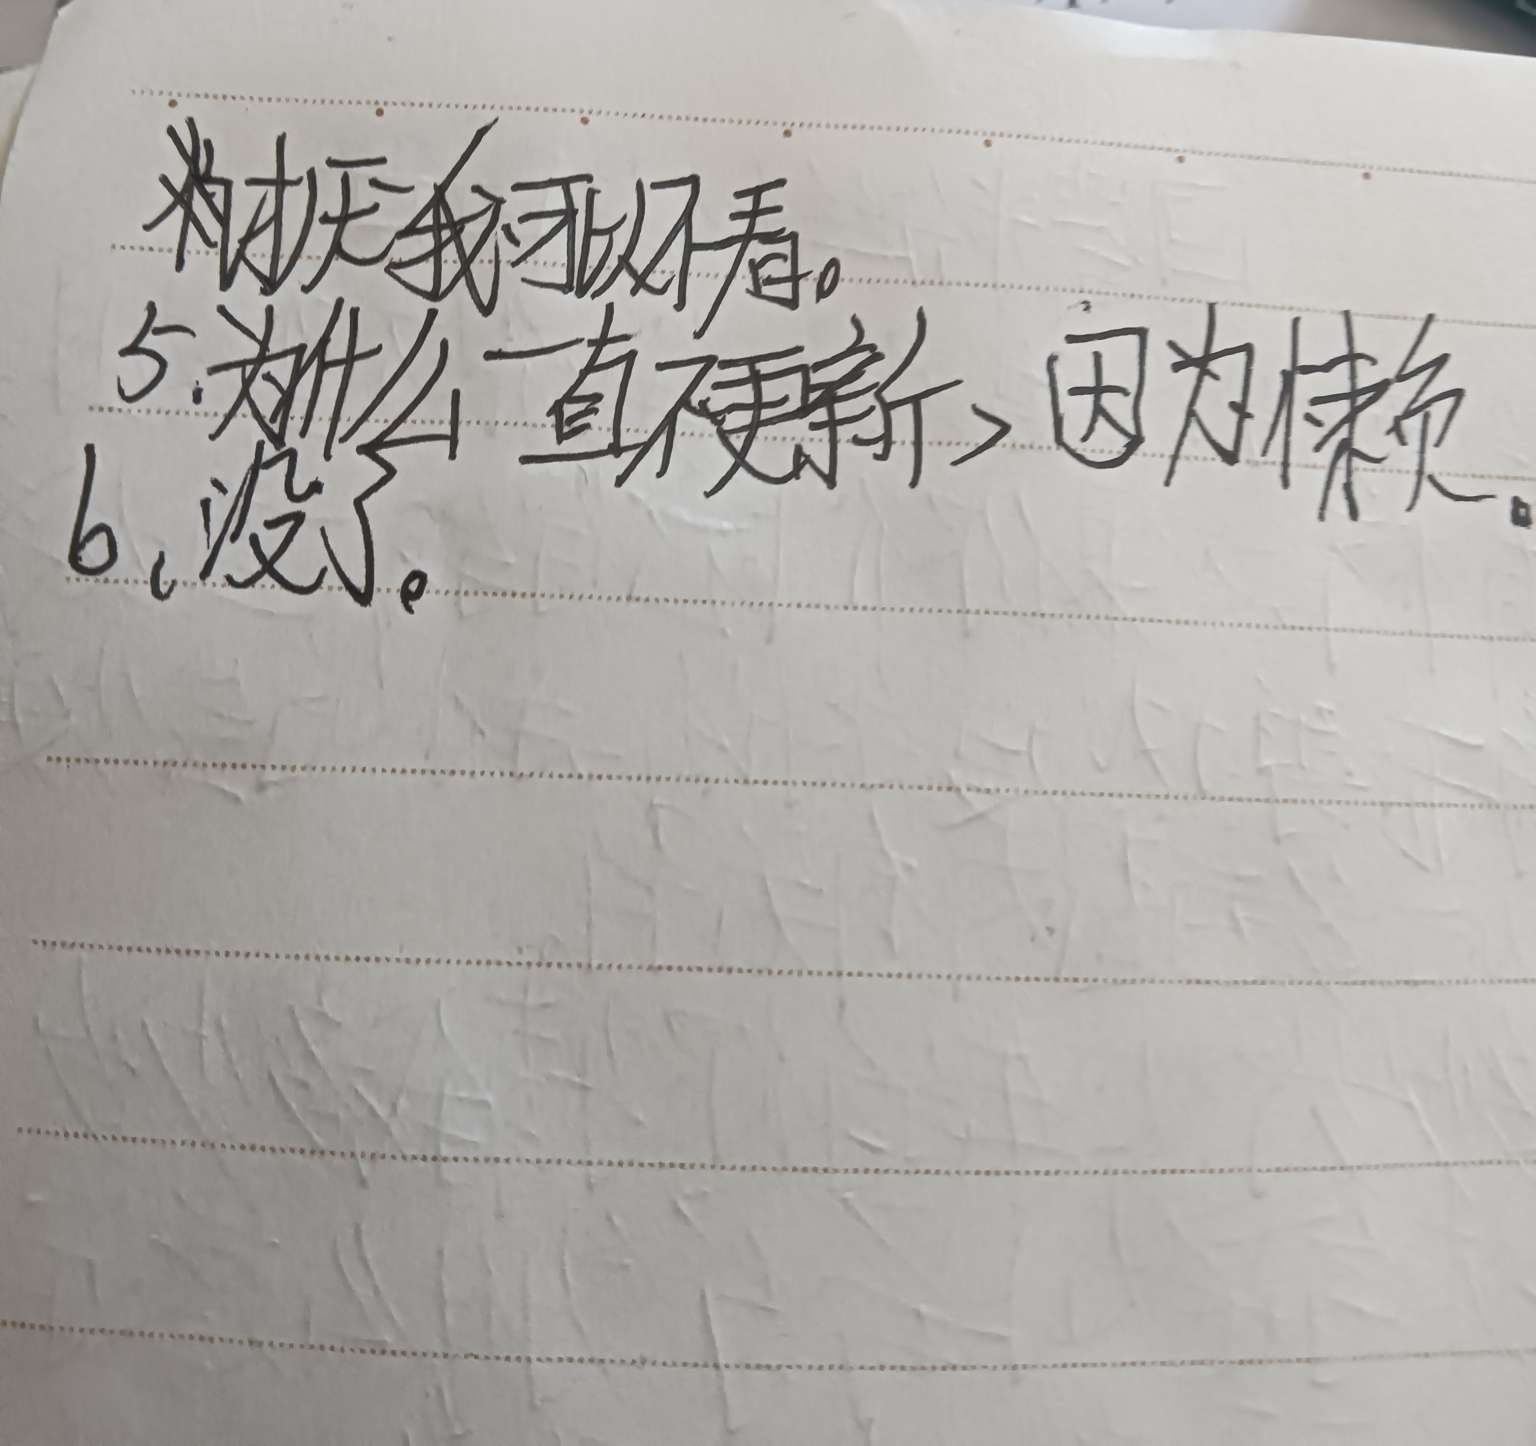 我可以不看。
5.为什么一直不更新,因为懒。
6、没了。